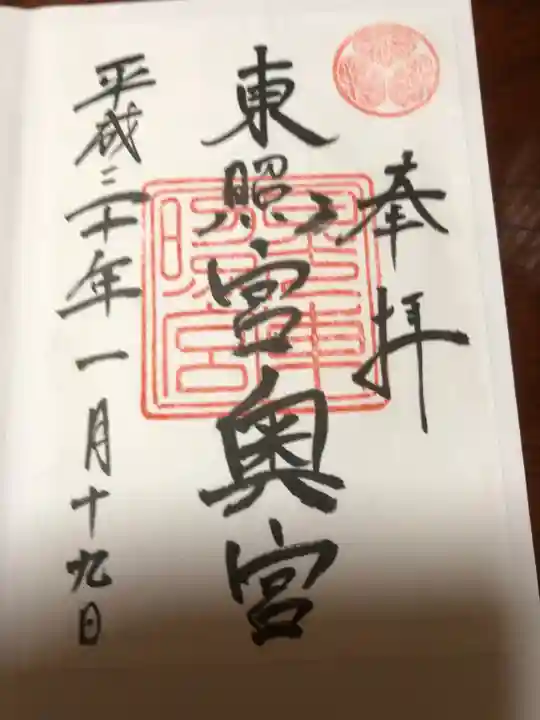 奉拝
東照宮奥宮
平成三十年一月十九日